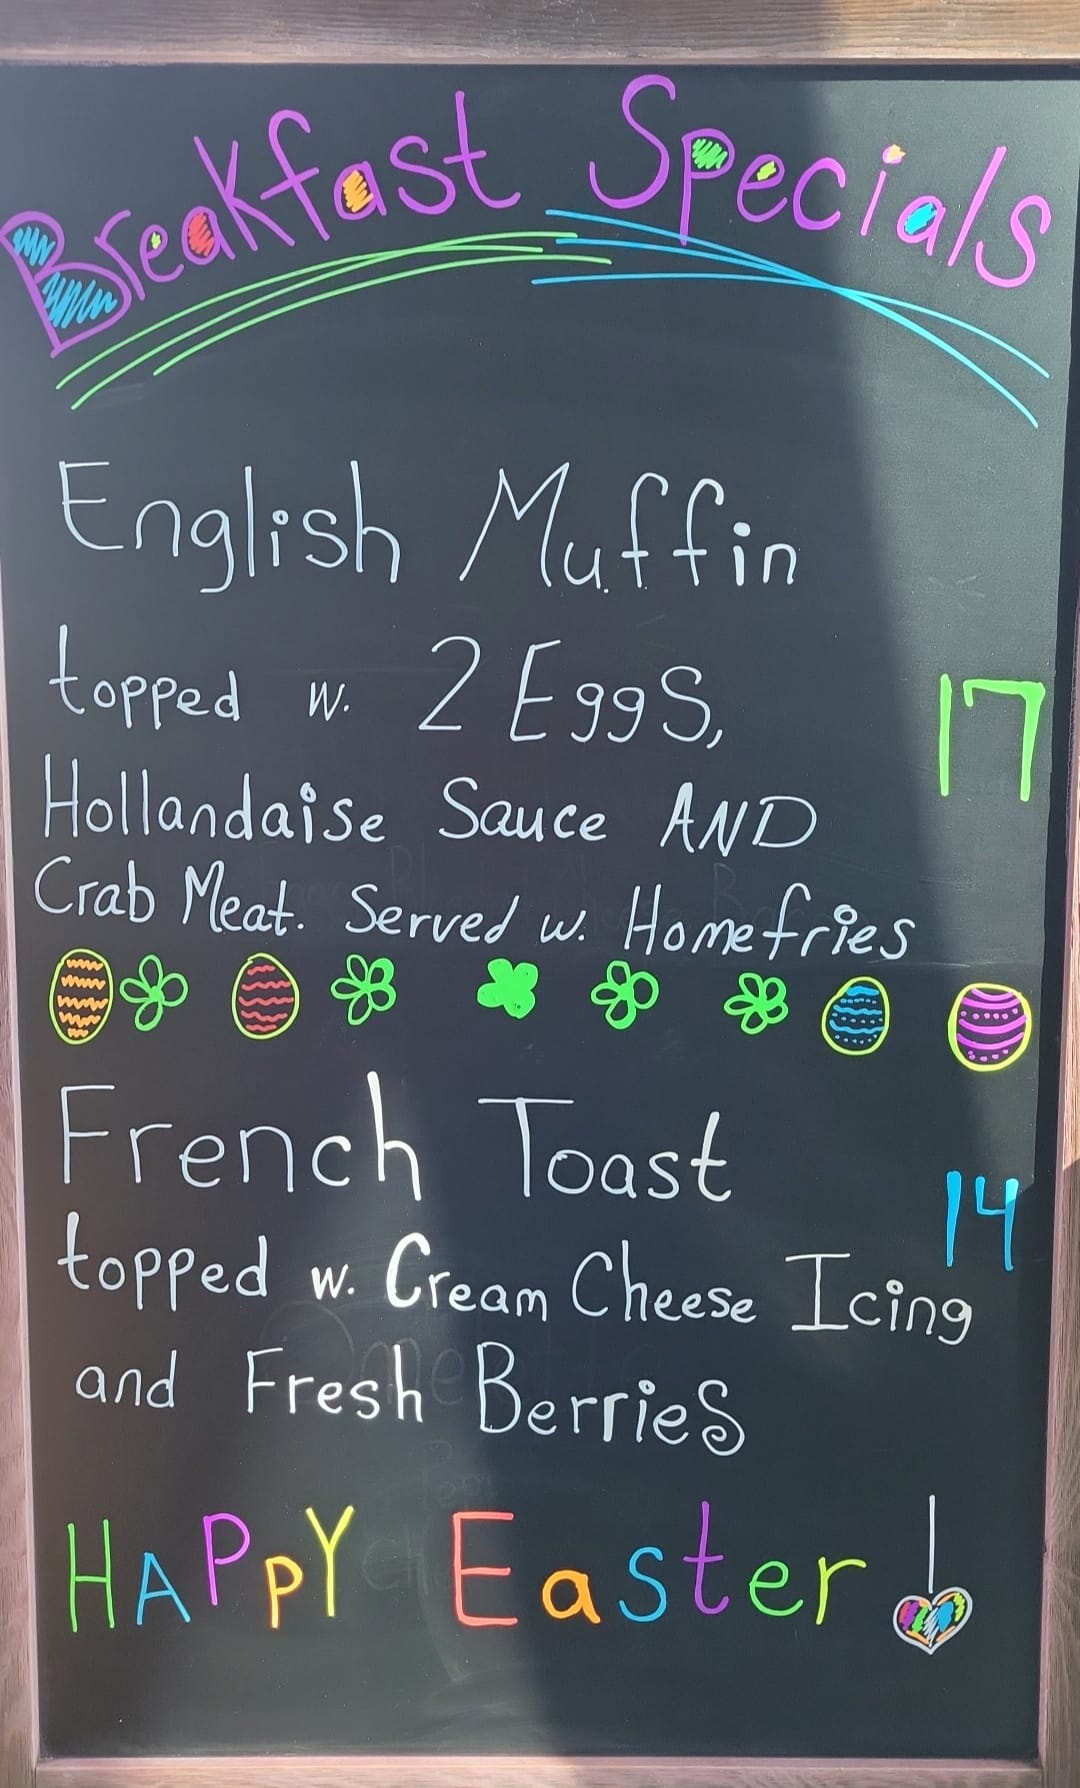 Breakfast Specials
English Muffin
topped w. 2 Eggs,
17
Hollandaise Sauce AND
Crab Meat. Served w. Homefries
French Toast
14
topped w. Cream Cheese Icing
and Fresh Berries
HAPPY Easter!